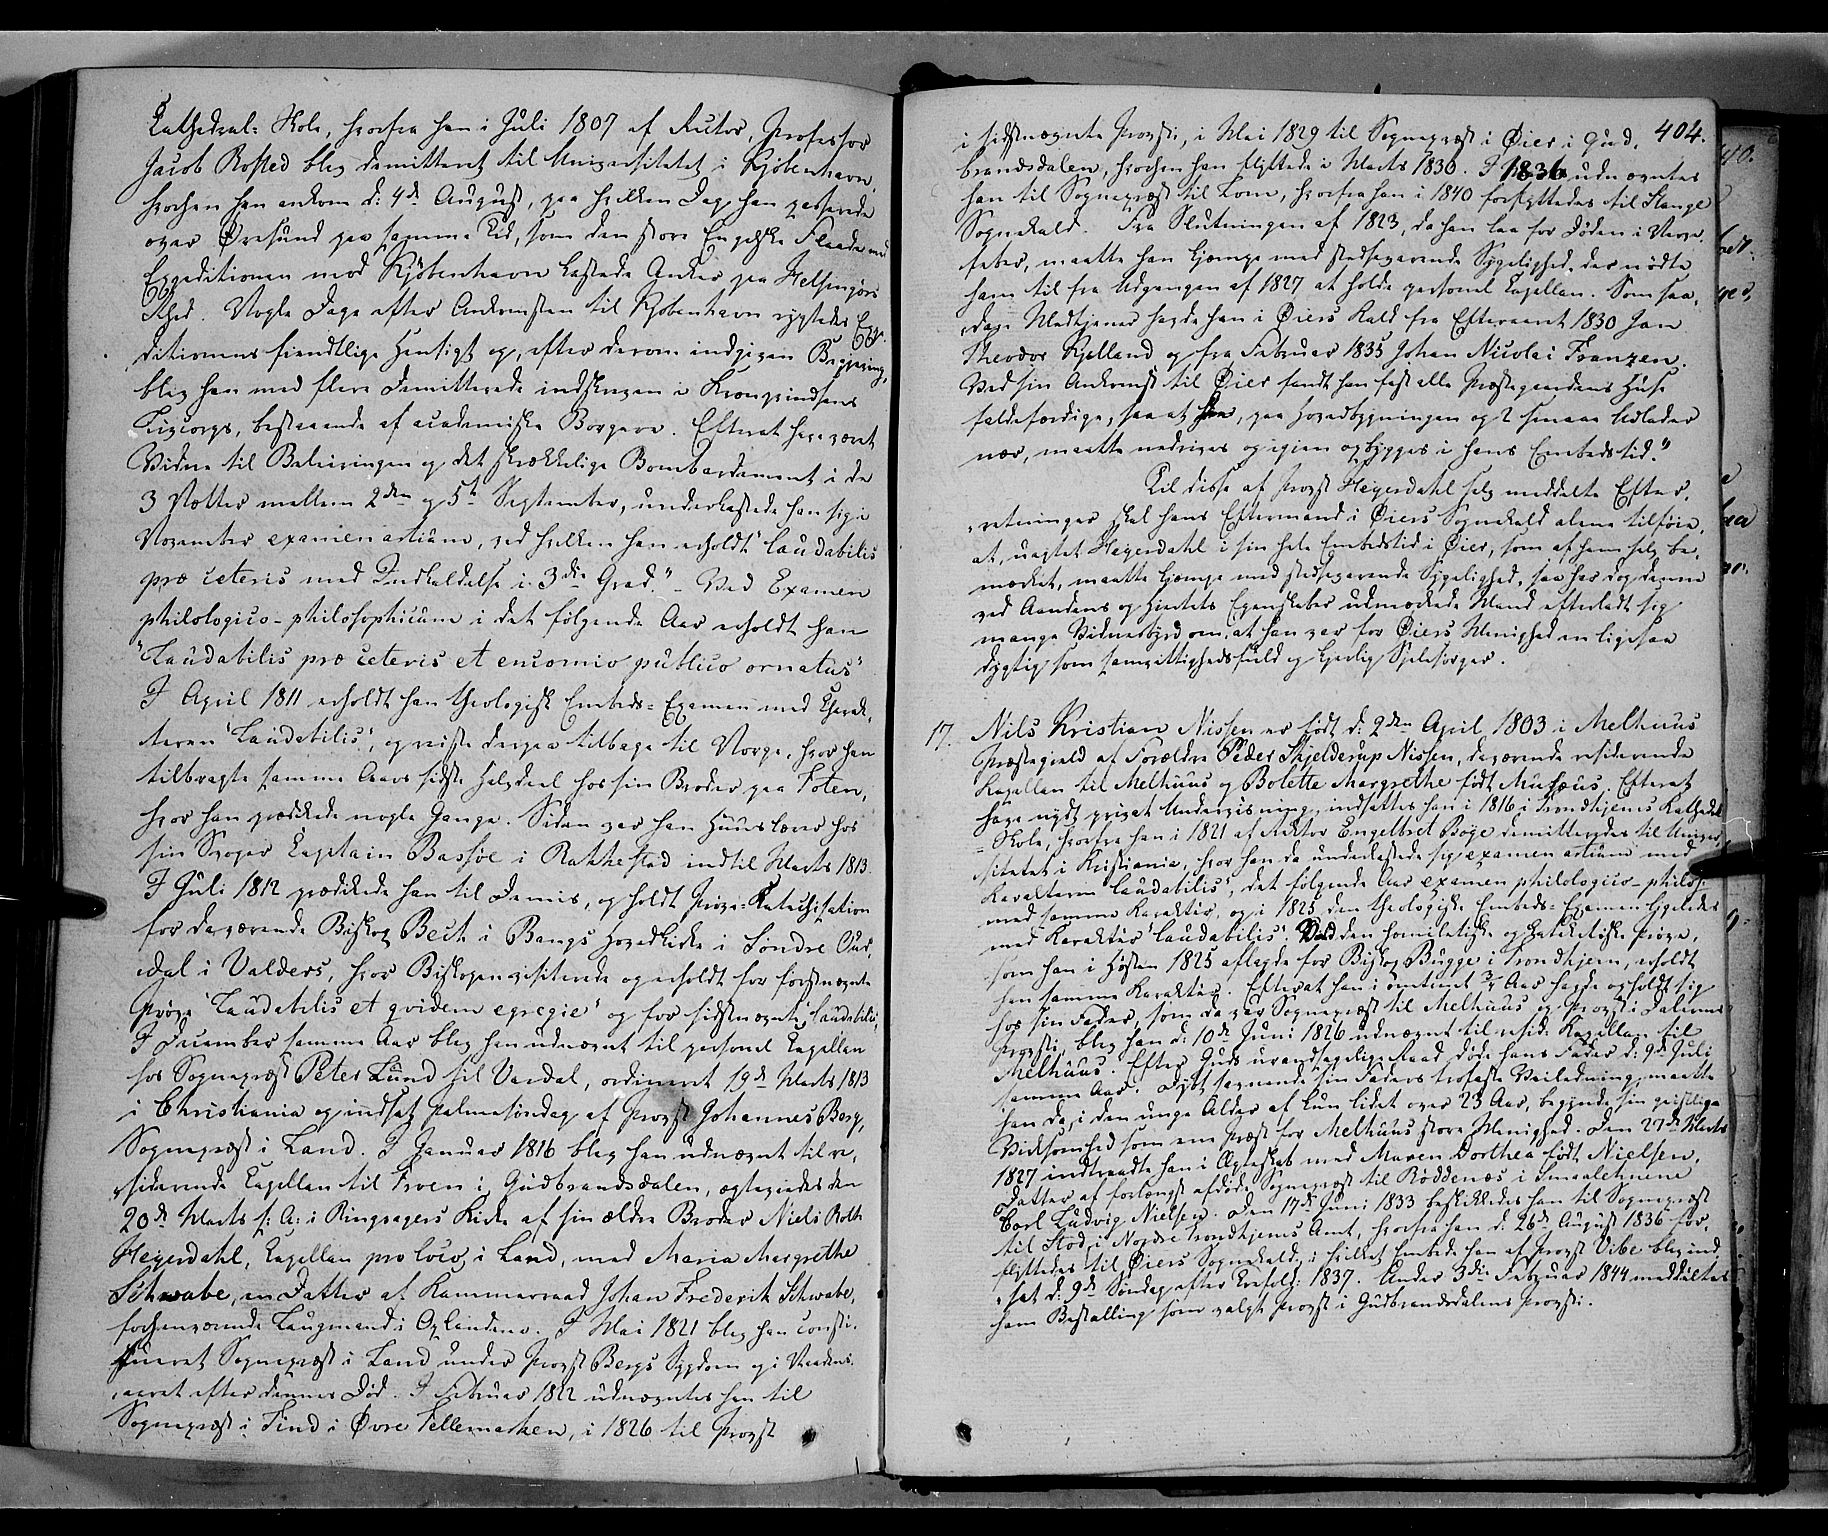 Cathedral-Skole, hvorfra han i Juli 1807 af Rector, Professor
Jacob Rosted blev demitteret til Universitetet i Kjöbenhavn,
hvorhen han ankom d: 4de August, paa hvilken Dag han passerede
over Øresund paa samme Tid, som den store Engelske Flaade med
Expeditionen mod Kjöbenhavn kastede Anker paa Helsingörs
Rhed. Nogle Dage efter Ankomsten til Kjöbenhavn rygtedes Expe-
ditionens fiendtlige Hensigt og, efter derom indgiven Begjæring,
blev han med flere Demitterede indskreven i Kronprindsens
Livcorps, bestaaende af academiske Borgere. Efterat have været
Vidne til Beleiringen og det skrækkelige Bombardement i de
3 Nætter mellem 2den og 5te September, underkastede han sig i
November examen artium, ved hvilken han erholdt "laudabilis
præ ceteris med Indkaldelse i 3die Grad." - Ved Examen
philologico-philosophicum i det fölgende Aar erholdt han
"Laudabilis præ ceteris et encomio publico ornatus"
I April 1811 erholdt han theologisk Embeds-Examen med Charak-
teren "Laudabilis", og reiste derpaa tilbage til Norge, hvor han
tilbragte samme Aars sidste Halvdeel hos sin Broder paa Toten,
hvor han prædikede nogle Gange. Siden var han Huuslærer hos
sin Svoger Capitain Bassöe i Rakkestad indtil Marts 1813.
I Juli 1812 prædikede han til Demis, og holdt Pröve-Katechisation
for daværende Biskop Bech i Bangs Hovedkirke i Söndre Aur-
dal i Valders, hvor Biskopen visiterede og erholdt for förstnævnte
Pröve "Laudabilis et qvidem egregie" og for sidstnævnte "laudabilis,
I December samme Aar blev han udnævnt til personel Capellan
hos Sognepræst Peter Lund til Vardal, ordineret 19de Marts 1813
i Christiania og indsat Palmesöndag af Provst Johannes Berg,
Sognepræst i Land. I Januar 1816 blev han udnævnt til re-
siderende Capellan til Froen i Gudbrandsdalen, ægteviedes den
20de Marts s: A: i Ringsagers Kirke af sin ældre Broder Niels Roth
Heyerdahl, Capellan pro loco i Land, med Maria Margrethe
Schwabe, en Datter af Kammerraad Johan Frederik Schwabe,
forhenværende Laugmand i Oplandene. I Mai 1821 blev han consti-
tueret Sognepræst i Land under Provst Bergs Sygdom og i Naadens-
aaret efter dennes Död. I Februar 1822 udnævntes han til
Sognepræst i Tind i Øvre Tellemarken, i 1826 til Provst
404.
i sidstnævnte Provsti, i Mai 1829 til Sognepræst i Øier i Gud-
brandsdalen, hvorhen han flyttede i Marts 1830. I 1836 udnævntes
han til Sognepræst til Lom, hvorfra han i 1840 forflyttedes til Stange
Sognekald. Fra Slutningen af 1823, da han laa for Döden i Nerve-
feber, maatte han kjæmpe med stedsevarende Sygelighed, der nödte
ham til fra Udgangen af 1827 at holde personel Capellan. Som saa-
danne Medtjener havde han i Øiers Kald fra Efteraaret 1830 Jan
Theodor Kjelland og fra Februar 1835 Johan Nicolai Franzen.
Ved sin Ankomst til Øier fandt han fast alle Præstegaardens Huse
faldefærdige, saa at han, paa Hovedbygningen og 2 smaae Udlader
nær, maatte nedrives og igjen opbygges i hans Embedstid."
Til disse af Provst Heyerdahl selv meddelte Efter-
retninger skal hans Eftermand i Øiers Sognekald alene tilföie,
at, uagtet Heyerdahl i sin hele Embedstid i Øier, som af ham selv be-
mærket, maatte kjæmpe med stedsevarende Sygelighed, saa har dog denne
ved Aandens og Hjertets Egenskaber udmærkede Mand efterladt sig
mange Vidnesbyrd om, at han var for Øiers Menighed en ligesaa
dygtig som samvittighedsfuld og kjerlig Sjelesörger.
17. Nils Kristian Nissen er födt d: 2den April, 1803 i Melhuus
Præstegjeld af Forældre Peder Skjelderup Nissen, daværende residerende
Kapellan til Melhuus og Bolette Margrethe födt Musæus. Efterat
have nydt privat Underviisning, indsattes han i 1816 i Trondhjems Kathedral
-Skole, hvorfra han i 1821 af Rektor Engelbret Böge demitteredes til Univer-
sitetet i Kristiania, hvor han da underkastede sig examen artium med
Karakteren "laudabilis", det fölgende Aar examen philologico-philos:
med samme Karakter, og i 1825 den theologiske Embeds-Examen ligeledes
med Karakter "laudabilis". Ved den homiletiske og katekketiske Pröve,
som han i Hösten 1825 aflagde for Biskop Bugge i Trondhjem, erholdt
han samme Karakter. Efterat han i omtrent ¾ Aar havde opholdt sig
hos sin Fader, som da var Sognepræst til Melhuus og Provst i Dalernes
Provsti, blev han d: 10de Juni 1826 udnævnt til resid: Kapellan til
Melhuus. Efter Guds urandsagelige Raad döde hans Fader d: 9de Juli
samme Aar. Dybt savnende sin Faders trofaste Veiledning, maatte
han da, i den unge Alder af kun lidet over 23 Aar, begynde sin geistlige
Virksomhed som ene Præst for Melhuus store Menighed. Den 27de Marts
1827 indtraadte han i Ægteskab med Maren Dorthea födt Nielsen,
Datter af forlængst afdöde Sognepræst til Röddenæs i Smaalehnene
Carl Ludvig Nielsen. Den 17de Juni 1833 beskikkedes han til Sognepræst
til Stod i Nordre Trondhjems Amt, hvorfra han d: 26de August 1836 for-
flyttedes til Øiers Sognekald, i hvilket Embede han af Provst Vibe blev ind-
sat d: 9de Söndag efter Trefold: 1837. Under 3die Februar 1844 meddeltes
ham Bestalling som valgt Provst i Gudbrandsdalens Provsti.